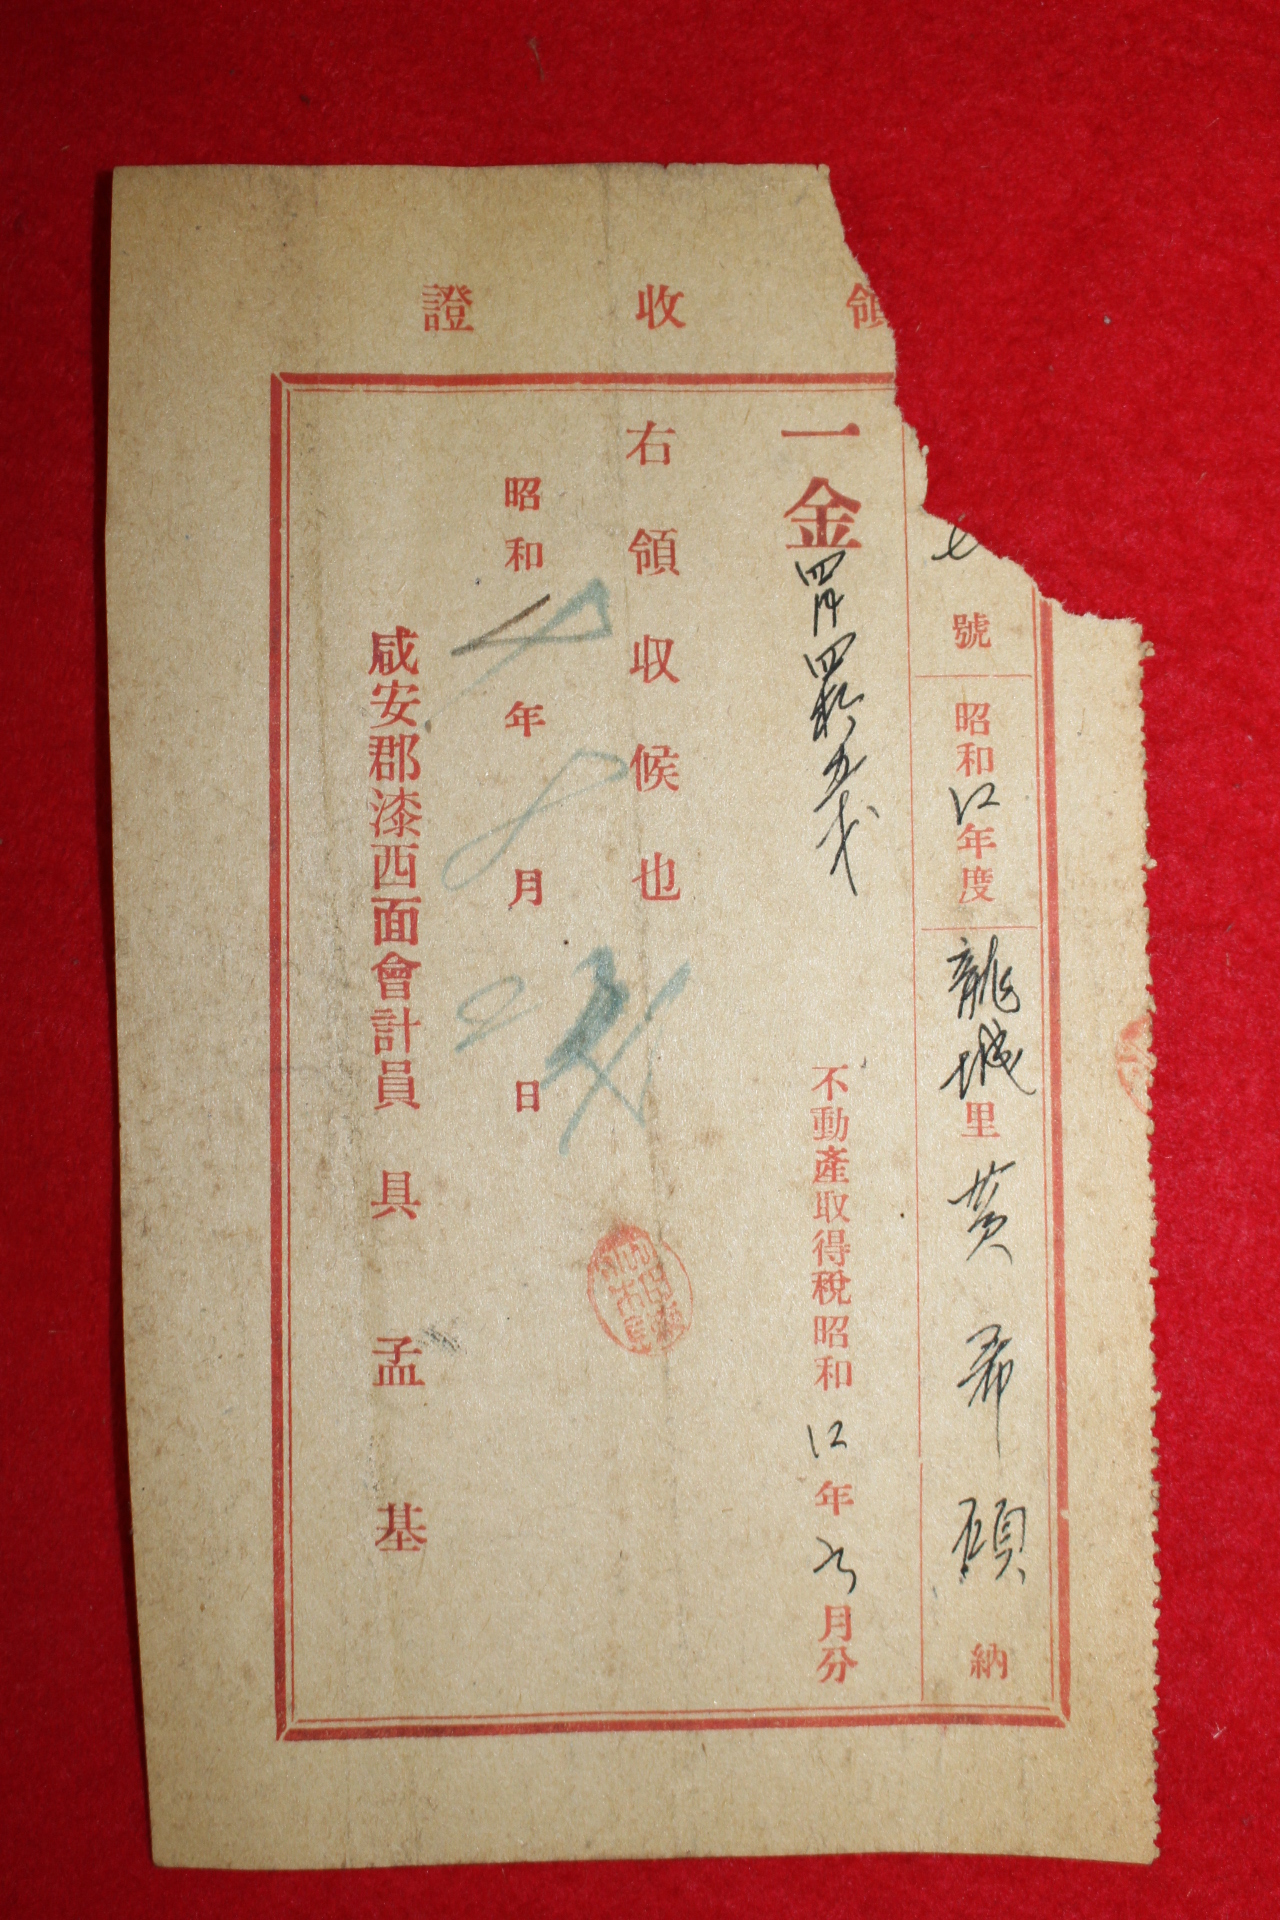 領收證
七號 昭和12年度 龍城里 黃希碩 納
一金四円四拾五戋
不動產取得稅昭和12年 月分
右領収候也
昭和 年 月 日
咸安郡漆西面會計員 具孟基